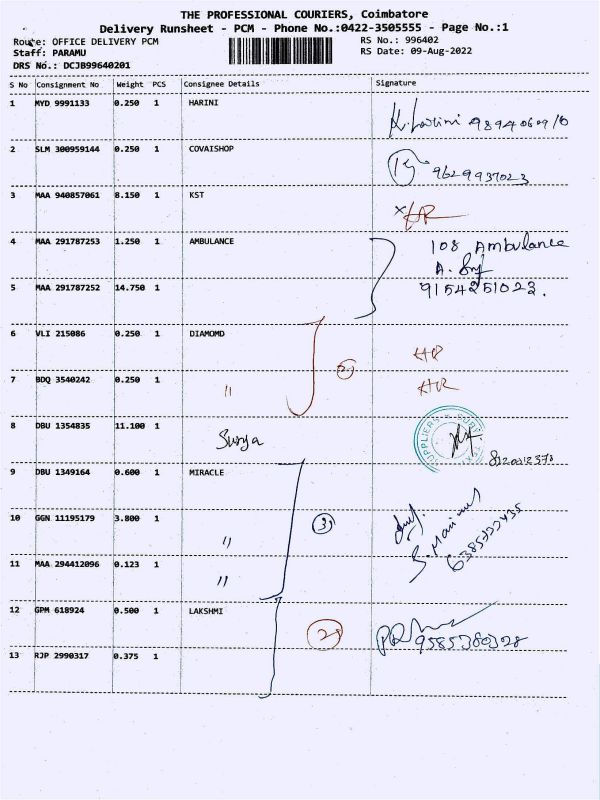 THE PROFESSIONAL COURIERS, Coimbatore
Delivery Runsheet - PCM - Phone No.:0422-3505555 - Page No.:1
Route: OFFICE DELIVERY PCM
RS No.: 996402
Staff: PARAMU
RS Date: 09-Aug-2022
DRS No.: DCJB99640201
S No Consignment No Weight PCS Consignee Details Signature
1 MYD 9991133 0.250 1 HARINI
2 SLM 300959144 0.250 1 COVAISHOP
9629937023
3 MAA 940857061 8.150 1 KST
4 MAA 291787253 1.250 1 AMBULANCE 108 Ambulance
5 MAA 291787252 14.750 1 9154251023.
6 VLI 215086 0.250 1 DIAMOMD
7 BDQ 3540242 0.250 1 "
8 DBU 1354835 11.100 1 Surya
9 DBU 1349164 0.600 1 MIRACLE
10 GGN 11195179 3.800 1 " 3
11 MAA 294412096 0.123 1 "
12 GPM 618924 0.500 1 LAKSHMI 2
9585380328
13 RJP 2990317 0.375 1